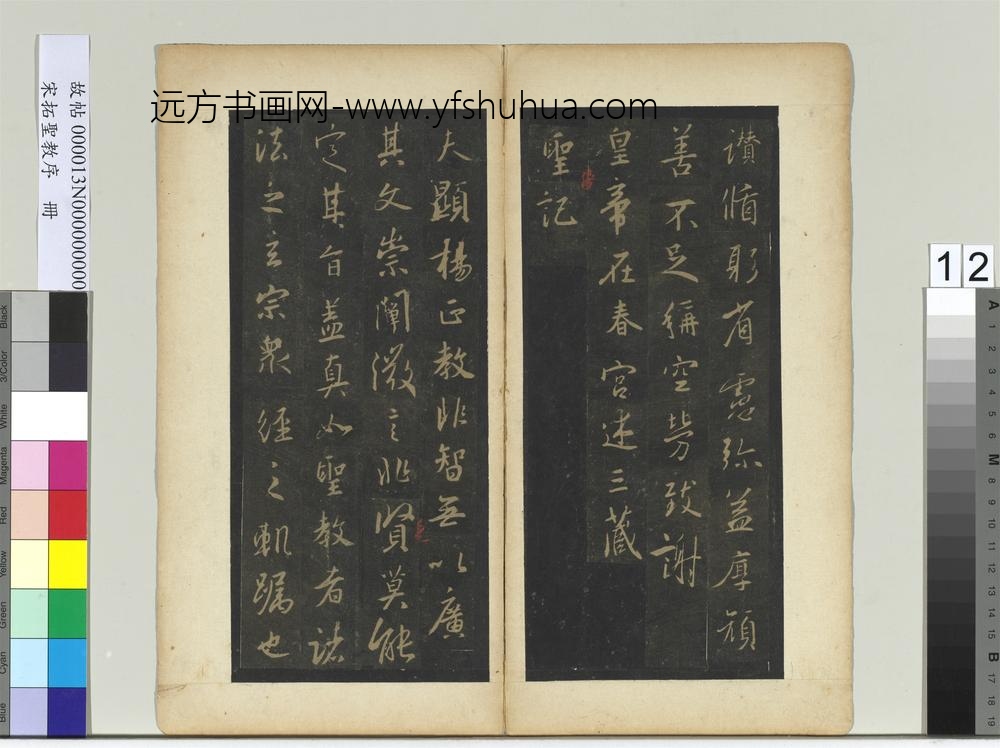 远方书画网-www.yfshuhua.com
故帖 000013N000000000
宋拓聖教序 冊
讚脩躬省慮彌益厚顏
善不足稱空勞致謝
皇帝在春宮述三藏
聖記
夫顯楊正教非智無以廣
其文崇闡微言非賢莫能
定其旨蓋真如聖教者諸
法之玄宗眾經之軌躅也
12
A 1 2 3 4 5 6 M 8 9 10 11 12 13 14 15 B 17 18 19
Black
3/Color
White
Magenta
Red
Yellow
Green
Cyan
Blue